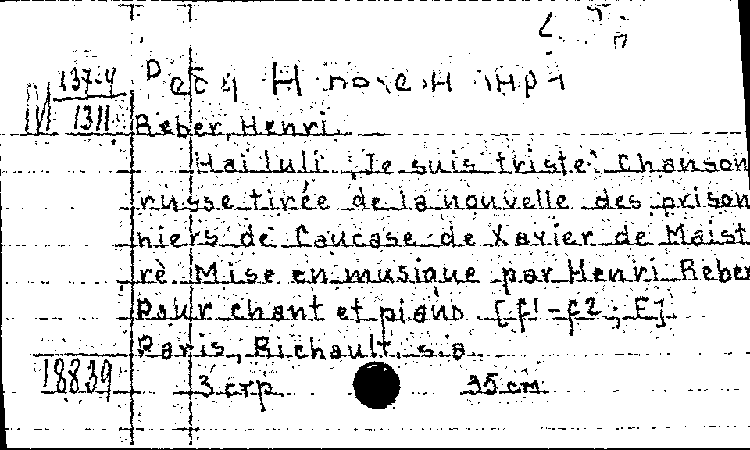 М 1374/1311
Reber, Henri.
Hai luli "Je suis triste" Chanson
russe tirée de la nouvelle des prison
niers de Caucase de Xavier de Maist
re. Mise en musique par Henri Reber
Pour chant et piano. [f1-f2; E]
Paris, Richault, s.a.
18839
3 стр. 35 см